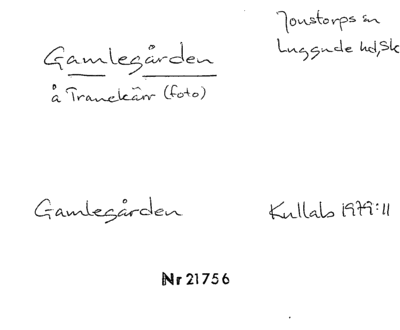 Jonstorps sn
Luggude hd, Sk
Gamlegården
å Tranekärr (foto)
Gamlegården
Kullabs 1979:11
Nr 21756